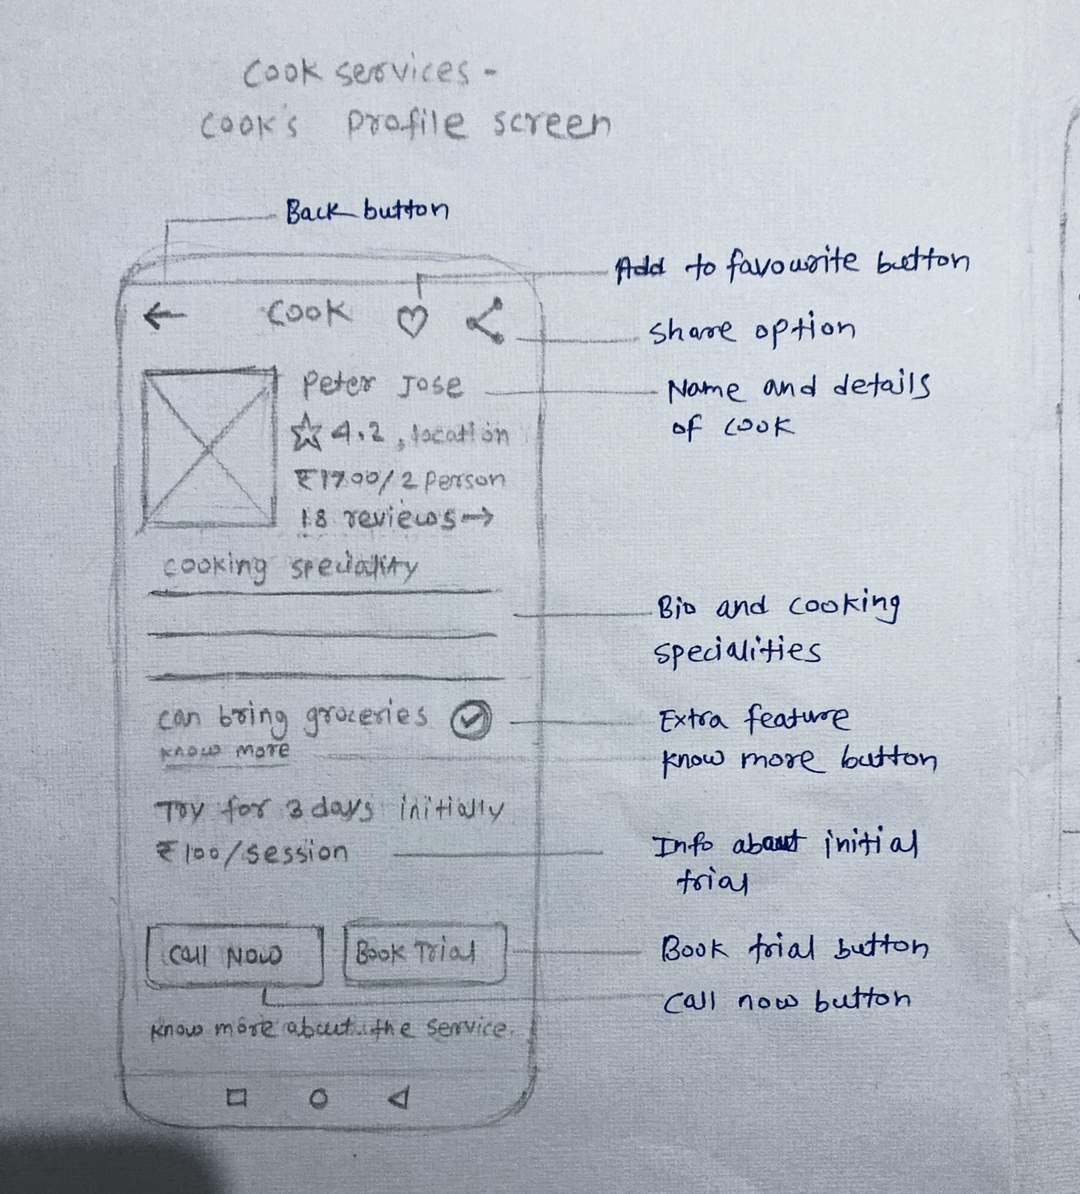 Cook services -
Cook's Profile screen
Back button
Add to favourite button
Cook
Share option
Peter Jose
Name and details
of cook
4.2, location
₹1700/2 Person
18 reviews→
Cooking speciality
Bio and cooking
specialities
Can bring groceries
Extra feature
Know more
Know more button
Try for 3 days initially
₹100/session
Info about initial
trial
Call Now
Book Trial
Book trial button
Call now button
Know more about the service.